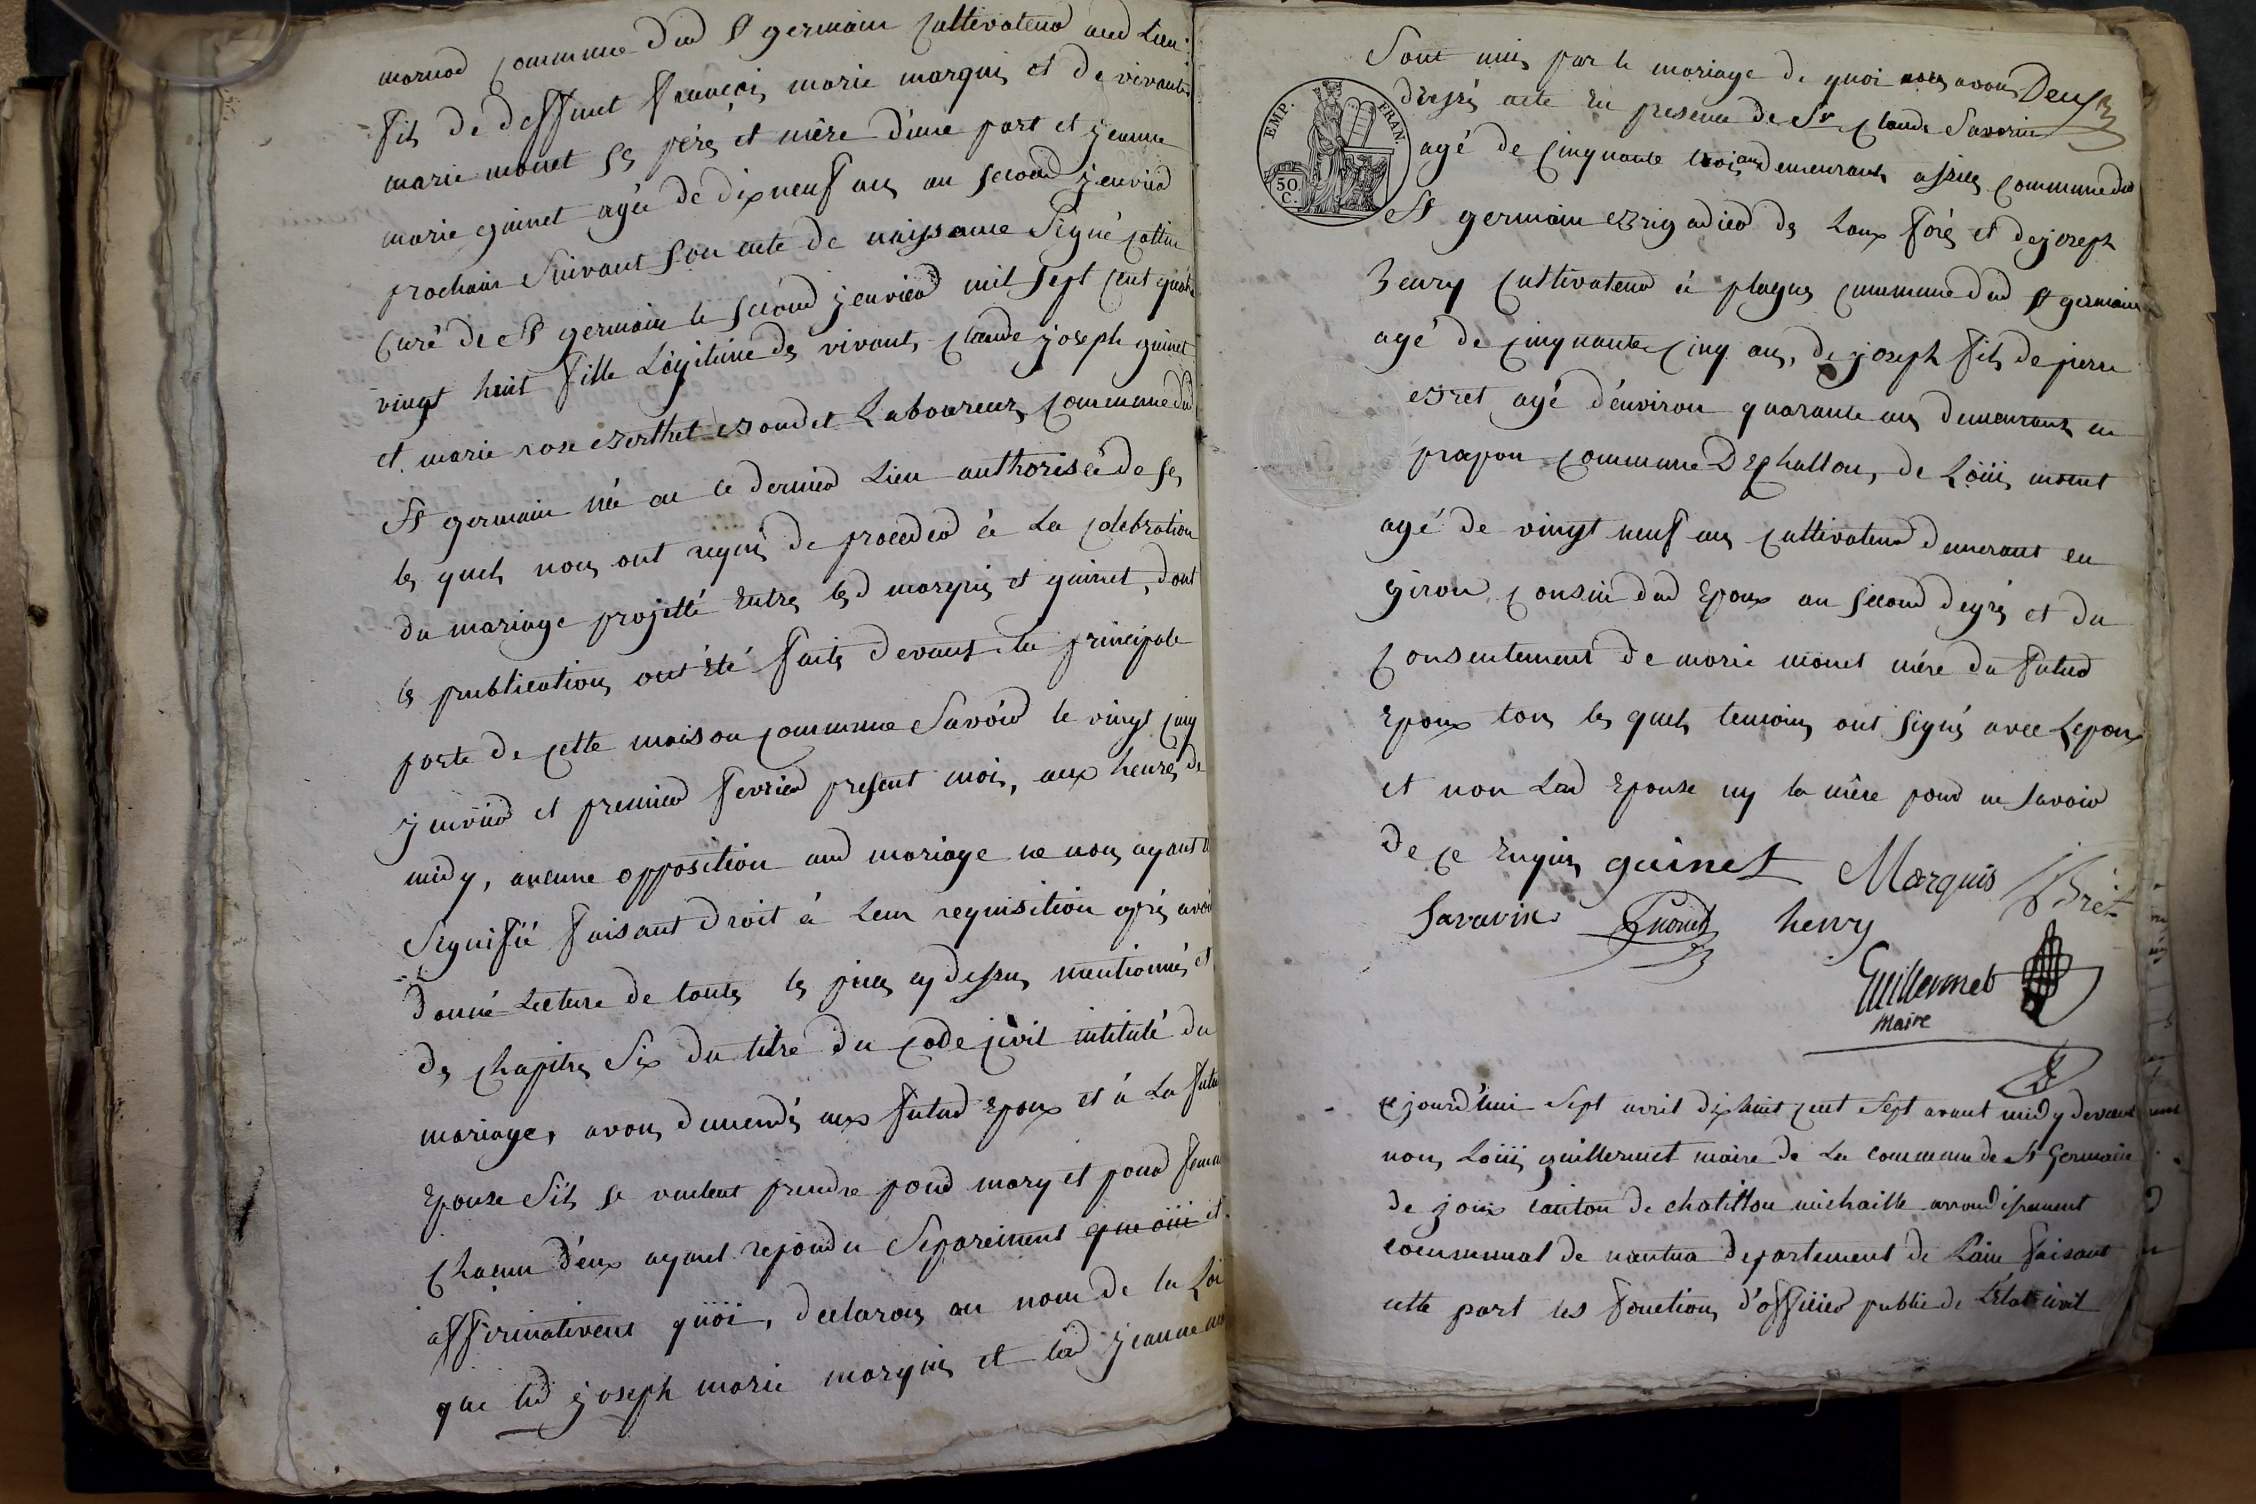 marnod commune dud St germain Cultivateur aud Lieu
fils de deffunt françois marie marquis et de vivante
marie monet ses pére et mère d'une part et jeanne
marie guinet agée de dix neuf ans au second jenvier
prochain Suivant son acte de naissance Signé Cottin
Curé de St germain le second jenvier mil sept Cent quatre
vingt huit fille Légitime des vivants Claude joseph guinet
et marie rose Berthet Bondet Laboureurs Commune dud
St germain née au ce dernier Lieu authorisée de ses
les quels nous ont requis de proceder à La Celebration
du mariage projetté Entre led marquis et guinet, dont
les publications ont Eté faites devant la principale
porte de Cette maison Commune Savoir le vingt Cinq
jenvier et premier fevrier present mois, aux heures de
midy, aucune opposition aud mariage ne nous ayant été
Signifié faisant droit à Leur requisition aprés avoir
donné Lecture de toutes les pieces cy dessus mentionnés et
du Chapitre Six du titre du Code Civil intitulé du
mariage, avons demendés aux futur Epoux et à La future
Epouse S'ils se veulent prendre pour mary et pour femme
Chacun d'eux ayant repondu Separement que oüi et
affirmativemt quoi, declarons au nom de la Loi
que led joseph marie marquis et lad jeanne marie
Sont unis par le mariage de quoi nous avons
Deux
dressés acte En presence de Sr Claude Savarin
EMP. FRAN.
50 C.
agé de Cinquante trois ans demeurant assies Commune dud
St germain Brigadier des Eaux foréts et de joseph
henry Cultivateur à plagnes Commune dud St germain
agé de Cinquante Cinq ans, de joseph fils de pierre
Bret agé d'environ quarante ans demeurant en
prapon Commune D'Echallon, de Loüis monet
agé de vingt neuf ans Cultivateur demerant en
giron Cousin dud Epoux au second degrés et du
Consentement de marie monet mére du futur
Epoux tous les quels temoins ont signés avec Lepoux
et non Lad Epouse ny la mére pour ne savoir
de ce Enquis guinet Marquis J Bret
Savarin L monet henry
Guillermet
Maire
Ce jourd'hui Sept avril dix huit cent Sept avant midy devant
nous Loüis guillermet maire de La commune de St Germain
de joux canton de chatillon michaille arrondissement
communal de nantua departement de Lain faisant
cette part les fonctions d'officier public de L'Etat civil